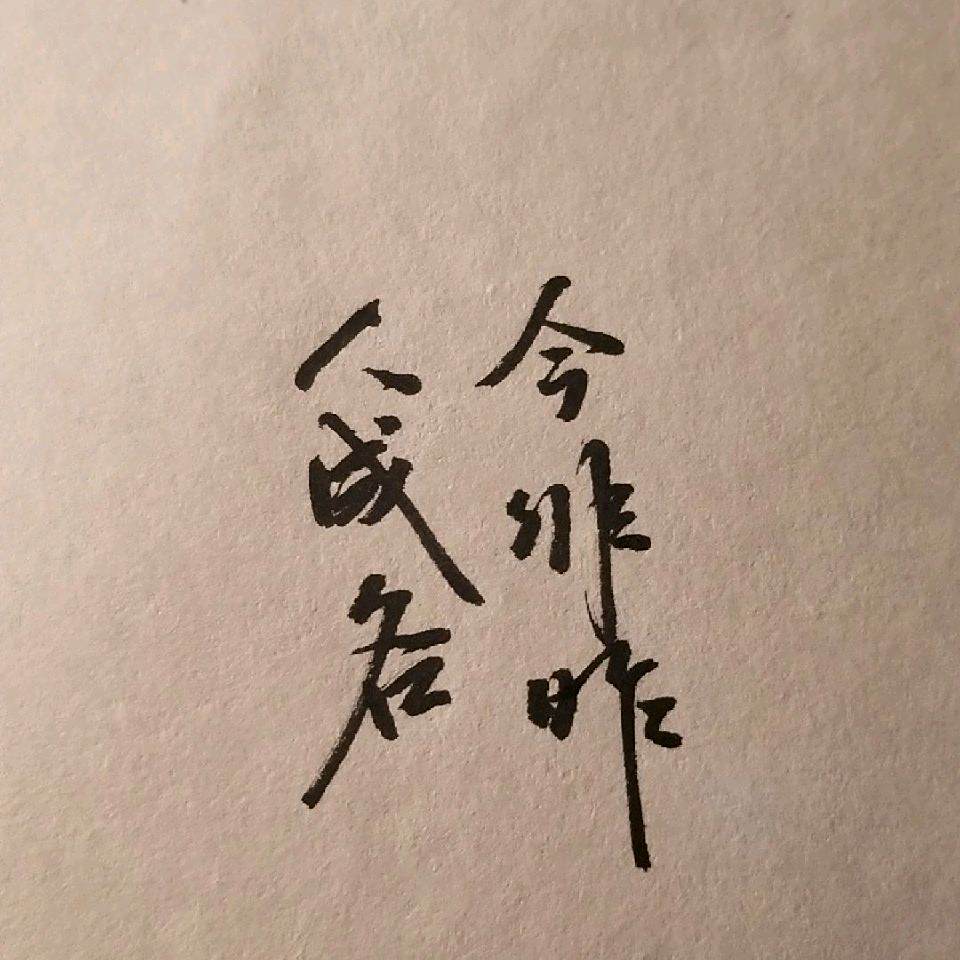 人成各
今非昨